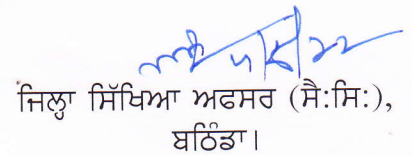 ਜਿਲ੍ਹਾ ਸਿੱਖਿਆ ਅਫਸਰ (ਸੈ:ਸਿ:),
ਬਠਿੰਡਾ।